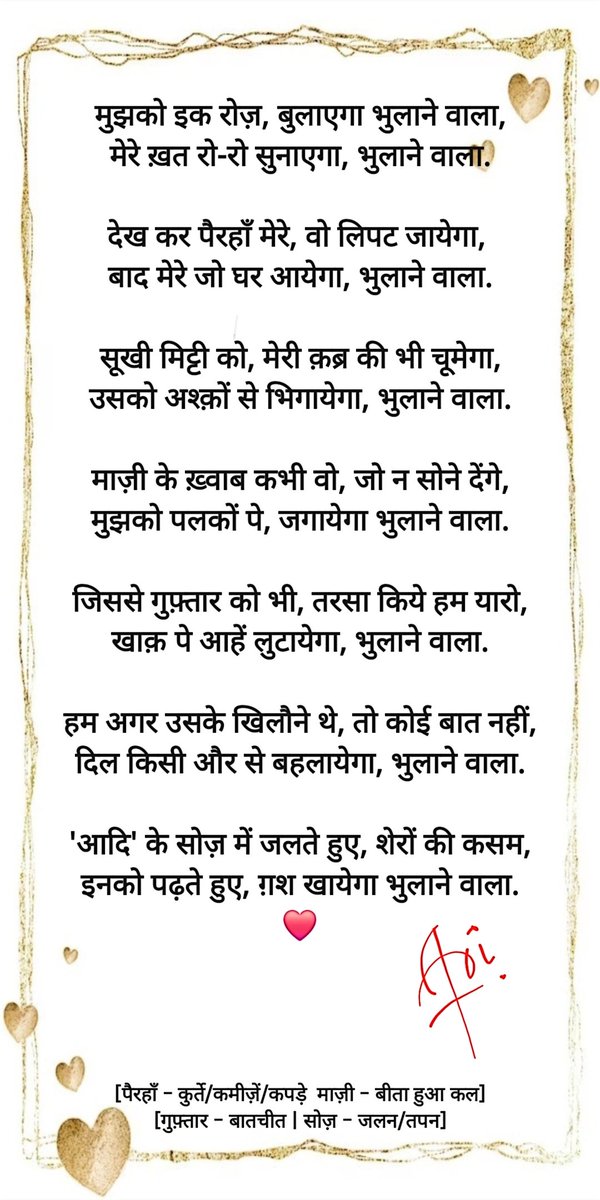 मुझको इक रोज़, बुलाएगा भुलाने वाला,
मेरे ख़त रो-रो सुनाएगा, भुलाने वाला.
देख कर पैरहाँ मेरे, वो लिपट जायेगा,
बाद मेरे जो घर आयेगा, भुलाने वाला.
सूखी मिट्टी को, मेरी क़ब्र की भी चूमेगा,
उसको अश्क़ों से भिगायेगा, भुलाने वाला.
माज़ी के ख़्वाब कभी वो, जो न सोने देंगे,
मुझको पलकों पे, जगायेगा भुलाने वाला.
जिससे गुफ़्तार को भी, तरसा किये हम यारो,
खाक़ पे आहें लुटायेगा, भुलाने वाला.
हम अगर उसके खिलौने थे, तो कोई बात नहीं,
दिल किसी और से बहलायेगा, भुलाने वाला.
'आदि' के सोज़ में जलते हुए, शेरों की कसम,
इनको पढ़ते हुए, ग़श खायेगा भुलाने वाला.
[पैरहाँ - कुर्ते/कमीज़ें/कपड़े माज़ी - बीता हुआ कल]
[गुफ़्तार - बातचीत | सोज़ - जलन/तपन]